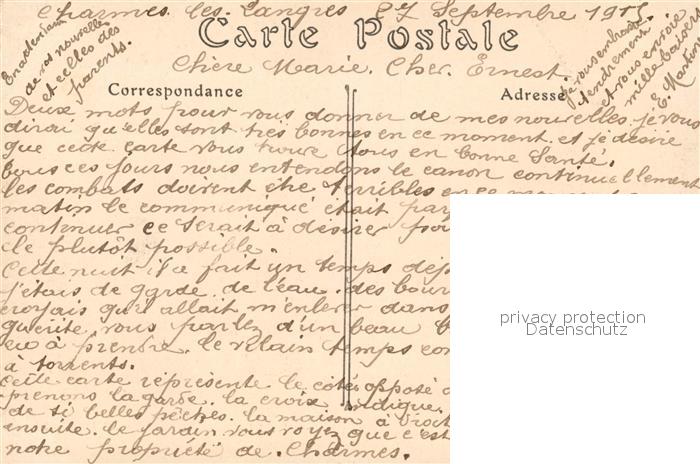 Charmes les Langres 27 Septembre 1915
Carte Postale
En attendant
de vos nouvelles
et celles des
parents.
Je vous embrasse
tendrement
et vous envoie
mille baisers
E.
Chère Marie. Cher Ernest.
Correspondance
Adresse
Deux mots pour vous donner de mes nouvelles je vous
dirai qu'elles sont très bonnes en ce moment et je désire
que cette carte vous trouve tous en bonne Santé.
tous ces jours nous entendons le canon continuellement
les combats doivent être terribles en ce
matin le communiqué était
continuer ce serait à désirer
cle plutôt possible.
Cette nuit il a fait un temps
j'étais de garde de l'eau des
croyais qu'il allait m'enlever dans
guérite vous parlez d'un beau
eu à prendre. le vilain temps
à torrents.
Cette carte représente le côté opposé
prenons la garde. la croix indique
de si belles pêches. la maison à
ensuite. le jardin vous voyez que c'est
notre propriété de Charmes.
privacy protection
Datenschutz